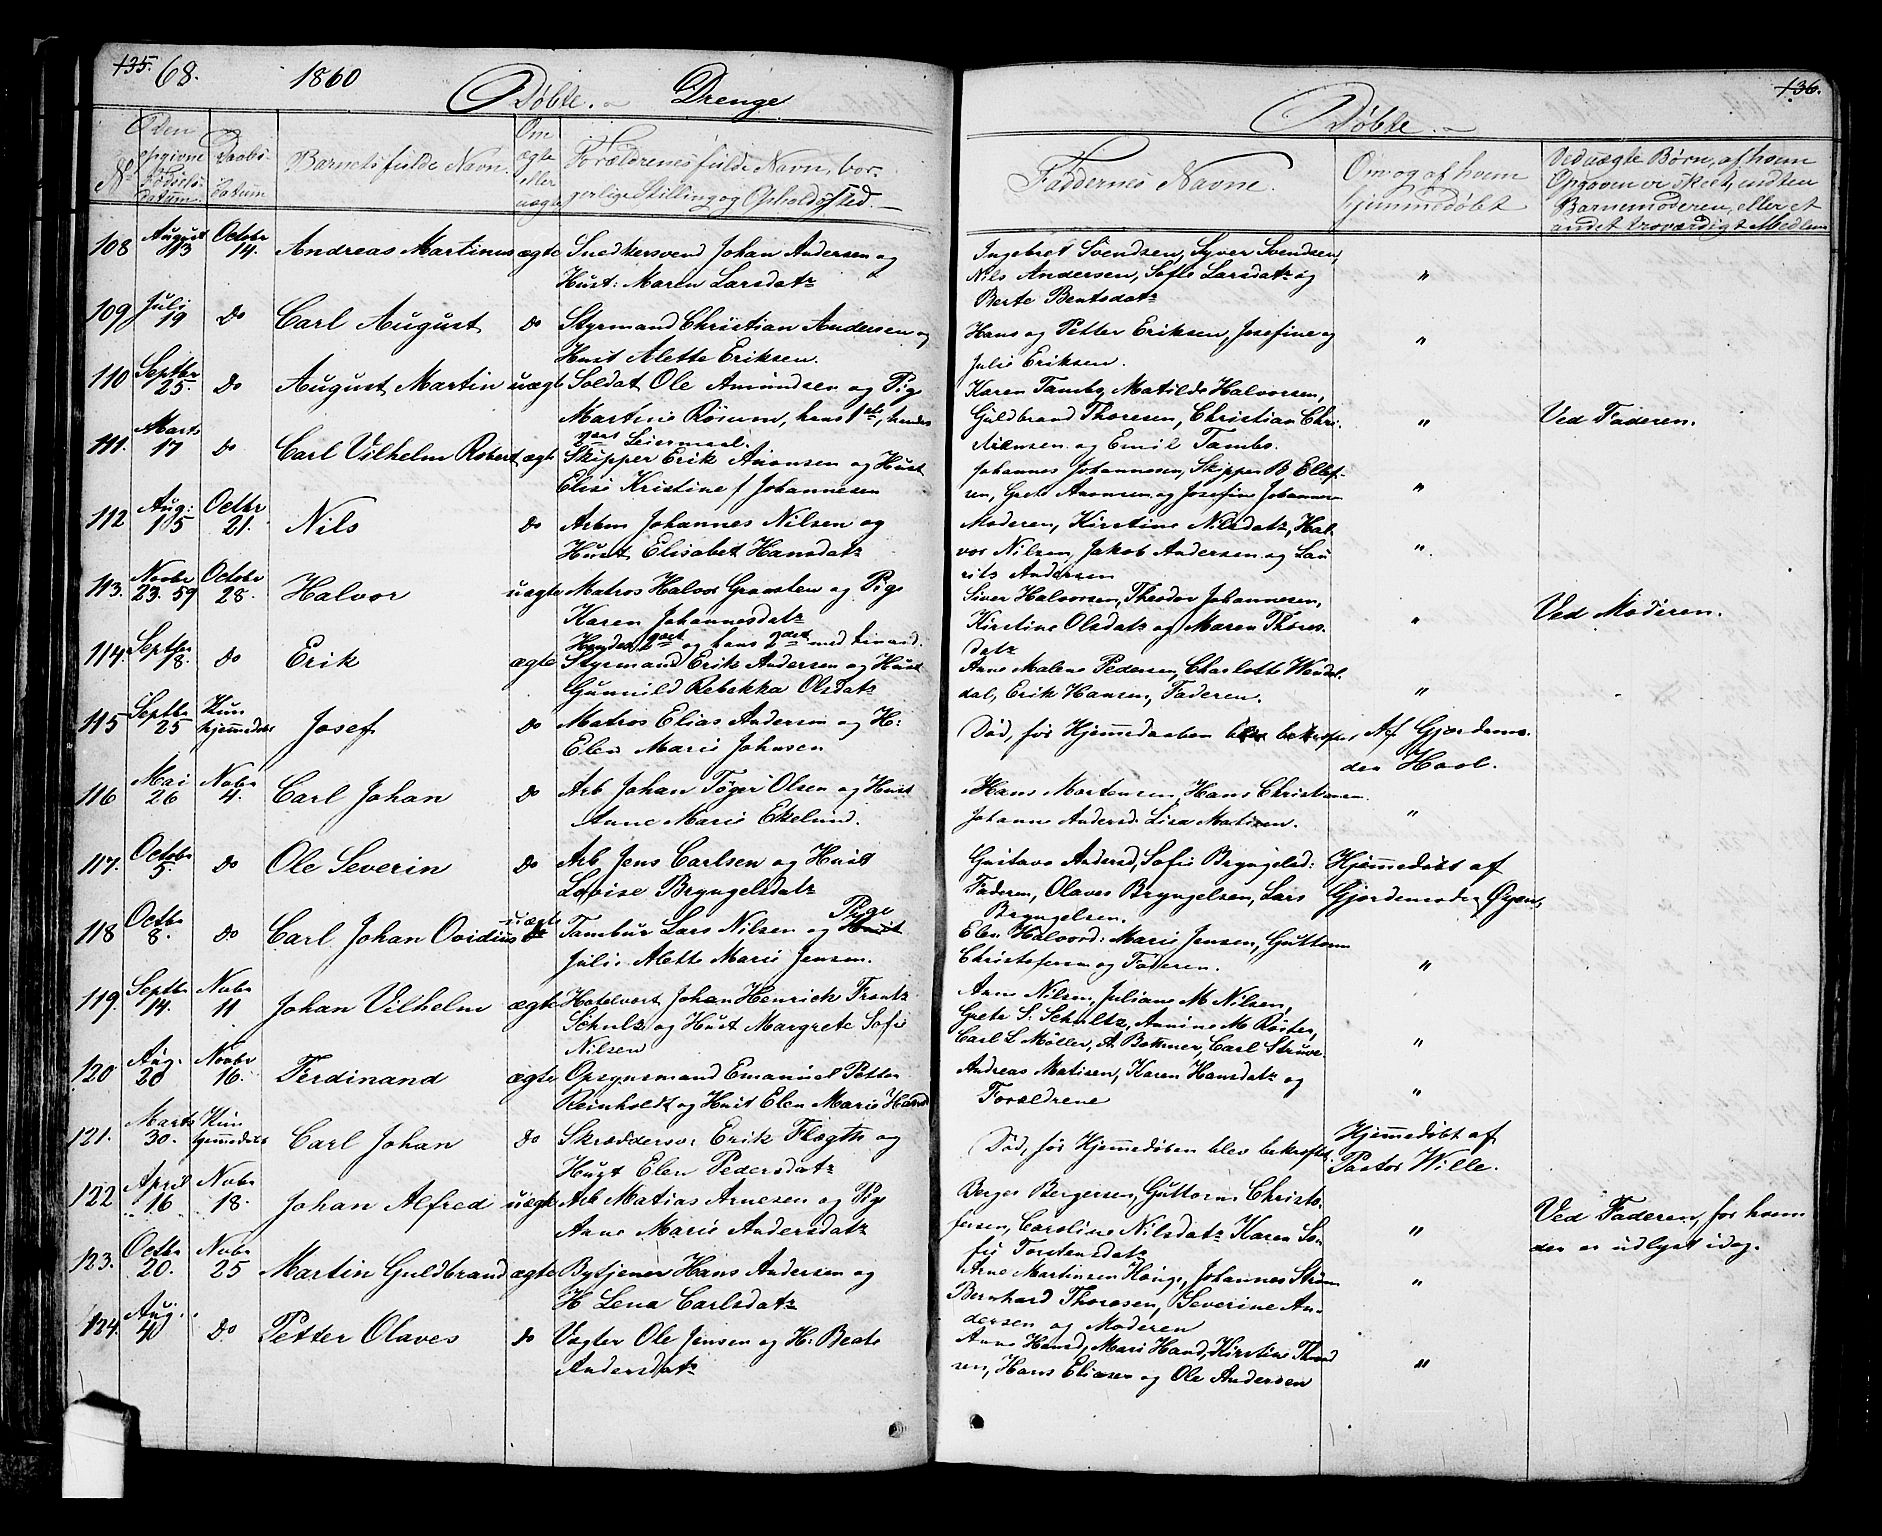 135. 68. 1860
Døbte. Drenge
No Den opgivne Fødsels-Datum
Daabs-Datum
Barnets fulde Navn.
Om ægte eller uægte
Forældrenes fulde Navn, bor-
gerlige Stilling og Opholdssted.
108 August 13 Octobr 14. Andreas Martinus ægte Snedkersvend Johan Andersen og
Hust: Maren Larsdatr
109 Juli 19 Do Carl August Do Styrmand Christian Andersen og
Hust Alette Eriksen.
110 Septbr 25. Do August Martin uægte Soldat Ole Amundsen og Pige
Martine Røsum, hans 1ste, hendes
2det Leiermaal.
111. Marts 17 Do Carl Vilhelm Robert ægte Skipper Erik Aronsen og Hust
Elise Kristine f Johannesen
112 Aug: 15 Octbr 21. Nils Do Arbm Johannes Nilsen og
Hust Elisabet Hansdatr
113. Novbr 23. 59 Octobr 28. Halvor uægte Matros Halvor Graasten og Pige
Karen Johannesdatr
Hendes 2det og hans 2det med hinand.
114. Septbr 18. Do Erik ægte Styrmand Erik Andersen og Hust
Gunnild Rebekka Olsdatr
115 Septbr 25 Kun hjemmedøbt Josef Do Matros Elias Andersen og H:
Elen Marie Johnsen
116 Mai 26 Novbr 4. Carl Johan Do Arb Johan Tøger Olsen og Hust
Anne Marie Ekelund.
117. Octobr 5. Do Ole Severin Do Arb Jens Carlsen og Hust
Lovise Bryngelsdatr
118 Octbr 8. Do Carl Johan Ovidius uægte Do Tambur Lars Nilsen og Hust Pige
Julie Alette Marie Jensen.
119. Septbr 14. Novbr 11 Johan Vilhelm ægte Hotelvert Johan Henrich Frantz
Schulz og Hust Margrete Sofie
Nilsen
120 Aug. 20 Novbr 16. Ferdinand ægte Opsynsmand Emanuel Petter
Reinholdt og Hust Elen Marie Hansd
121. Marts 30. Kun hjemmedøbt Carl Johan Do Skræddersv Erik Flægth og
Hust Elen Pedersdatr
122 April 16 Novbr 18. Johan Alfred uægte Arb Matias Arnesen og Pige
Anne Marie Andersdatr
123. Octbr 20. Novbr 25 Martin Guldbrand ægte Bytjener Hans Andersen og
H Lena Carlsdatr
124. Aug. 4 Do Petter Olaves Do Vægter Ole Jensen og H: Beate
Andersdatr
136.
Døbte.
Faddernes Navne.
Om og af hvem
hjemmedøbt
Ved uægte Børn, af hvem
Opgaven er skeet, enten
Barnemoderen, eller et
andet troværdigt Medlem
Ingebret Svendsen, Syver Svendsen,
Nils Andersen, Sofie Larsdatr og "
Berte Bentsdatr
Hans og Petter Eriksen, Josefine og
Julie Eriksen. "
Karen Tambo, Matilde Halvorsen,
Guldbrand Thoresen, Christian Chri- " Ved Faderen.
stensen og Emil Tambo.
Johannes Johannesen, Skipper B Ellef-
sen, Grete Aronsen og Josefine Johannesen "
Moderen, Kirstine Nilsdatr, Hal-
vor Nilsen, Jakob Andersen og Lau- "
rits Andersen
Siver Halvorsen, Theodor Johannesen,
Kirstine Olsdatr og Maren Thores- " Ved Moderen.
datr
Anne Malene Pedersen, Charlotte Wendel-
dal, Erik Hansen, Faderen. "
Død, før Hjemmedaaben blev bekræftet, Af Gjordemo-
der Hvol.
Hans Mortensen, Hans Christiansen.
Johanne Andersd. Lisa Matisen. "
Gustava Andersd, Sofie Bryngelsd: Hjemmedøbt af
Faderen, Olaves Bryngelsen, Lars Gjordemoder Øyen,
Bryngelsen.
Elen Halvorsd: Marie Jensen, Guttorm
Christofersen og Faderen. "
Anne Nilsen, Juliane M Nilsen,
Grete S. Schultz, Annine M Røster,
Carl L Møller, A. Bohmer, Carl Struve "
Andreas Matisen, Karen Hansdatr og
Forældrene "
Død, før Hjemmedøben blev bekræftet. Hjemmedøbt af
Pastor Wille.
Berger Bergersen, Guttorm Christo-
fersen, Caroline Nilsdatr Karen So- " Ved Faderen, for hvem
fie Torstensdatr der er udlyst idag.
Arne Martinsen Houge, Johannes Strøm "
Bernhard Thoresen, Severine An-
dersen og Moderen
Anne Hansd, Mari Hansd, Kirstine Thend
sen, Hans Eliasen og Ole Andersen "